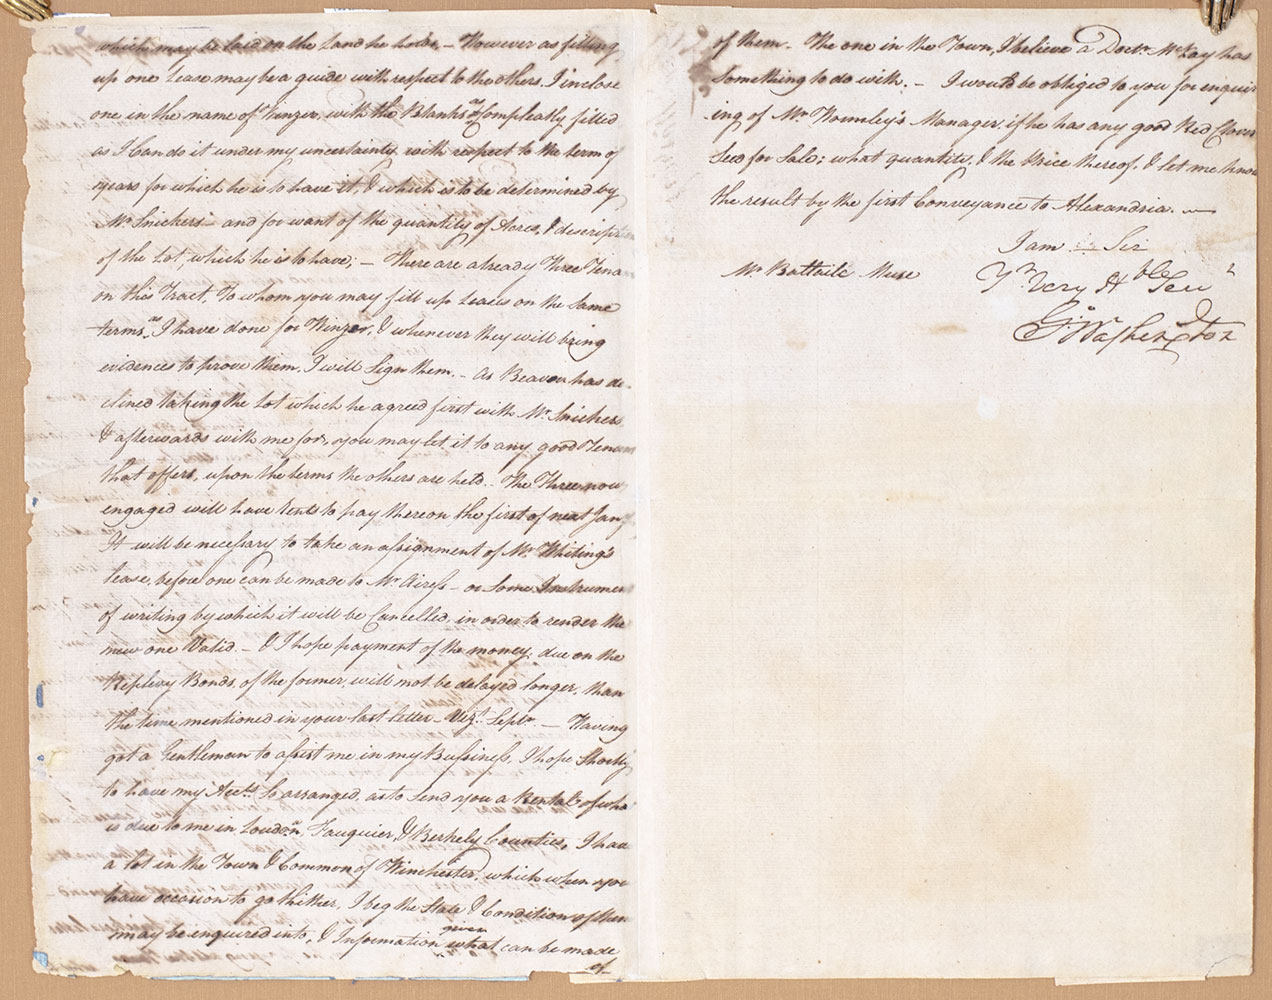 which may be laid on the Land he holds. – However as filling
up one Lease may be a guide with respect to the others, I inclose
one in the name of Winzor, with the Blanks as compleatly filled
as I can do it under my uncertainty with respect to the term of
years for which he is to have it, & which is to be determined by
Mr. Snickers – and for want of the quantity of Acres, & descripti
of the Lot, which he is to have; – There are already Three Tena
on this Tract, To whom you may fill up Leases on the same
terms, as I have done for Winzor, & whenever they will bring
evidences to prove them, I will Sign them. – As Beavon has de-
clined taking the Lot which he agreed first with Mr. Snickers
& afterwards with me for, you may let it to any good Tenan
that offers, upon the terms the others are held. – The Three now
engaged will have Rents to pay thereon the first of next Jany
It will be necessary to take an assignment of Mr. Whiting's
Lease, before one can be made to Mr. Airess – or some Instrumen
of writing by which it will be Cancelled, in order to render the
new one Valid. – & I hope payment of the money, due on the
Replevy Bonds, of the former, will not be delayed longer, than
the time mentioned in your last letter – Vizt. Septr. – Having
got a Gentleman to assist me in my Bussiness, I hope Shortly
to have my Accts. So arranged, as to send you a Rental of wha
is due to me in Loudon, Fauquier, & Berkely Counties. I hav
a lot in the Town & Common of Winchester, which when you
have occasion to go thither, I beg the State & Condition of them
may be enquired into, & Information given what can be made
of
of them. – The one in the Town, I believe a Doctr. McKay has
something to do with. – I would be obliged to you for enquir
ing of Mr. Wormley's Manager if he has any good Red Clover
Seed for Sale; what quantity, & the Price thereof, & let me know
the result by the first Conveyance to Alexandria. –
I am – Sir
Mr. Battaile Muse
Yr. Very Hble Serv
Go: Washington